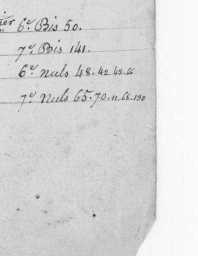 6.e Bis 50.
7.e Bis 141.
6.e nuls 48. 42.
7.e Nuls 65. 70. 11. 68. 130